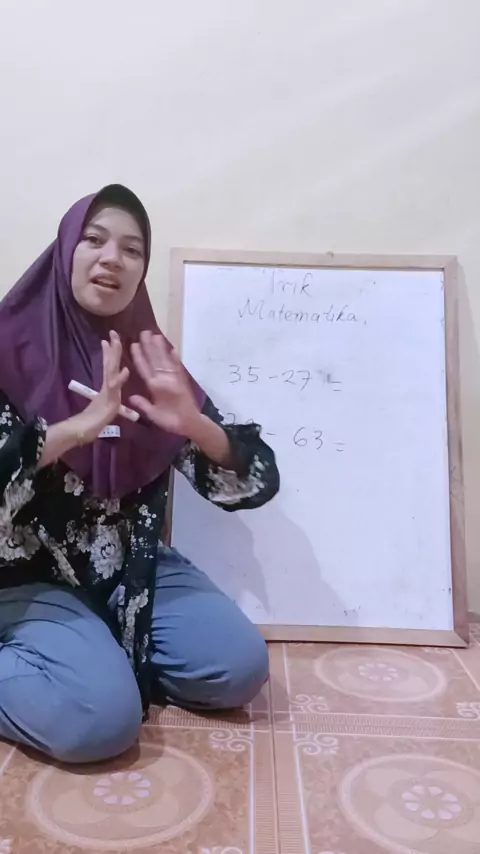 Trik
Matematika.
35 - 27 =
- 63 =